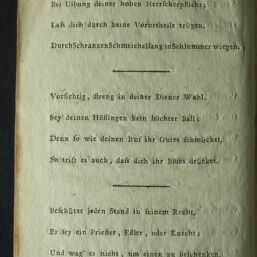 Bei Uibung deiner hohen Herrscherpflicht;
Laß dich durch keine Vorurtheile trügen,
Durch Schranzen Schmeichelsang in Schlummer wiegen.
Vorsichtig, streng in deiner Diener Wahl,
Sey deinen Höflingen kein leichter Ball;
Denn so wie deinen Ruf ihr Gutes schmücket,
So trift es auch, daß dich ihr Böses drücket.
Beschütze jeden Stand in seinem Recht,
Er sey ein Priester, Edler, oder Knecht;
Und wag' es nicht, um einen zu beschenken